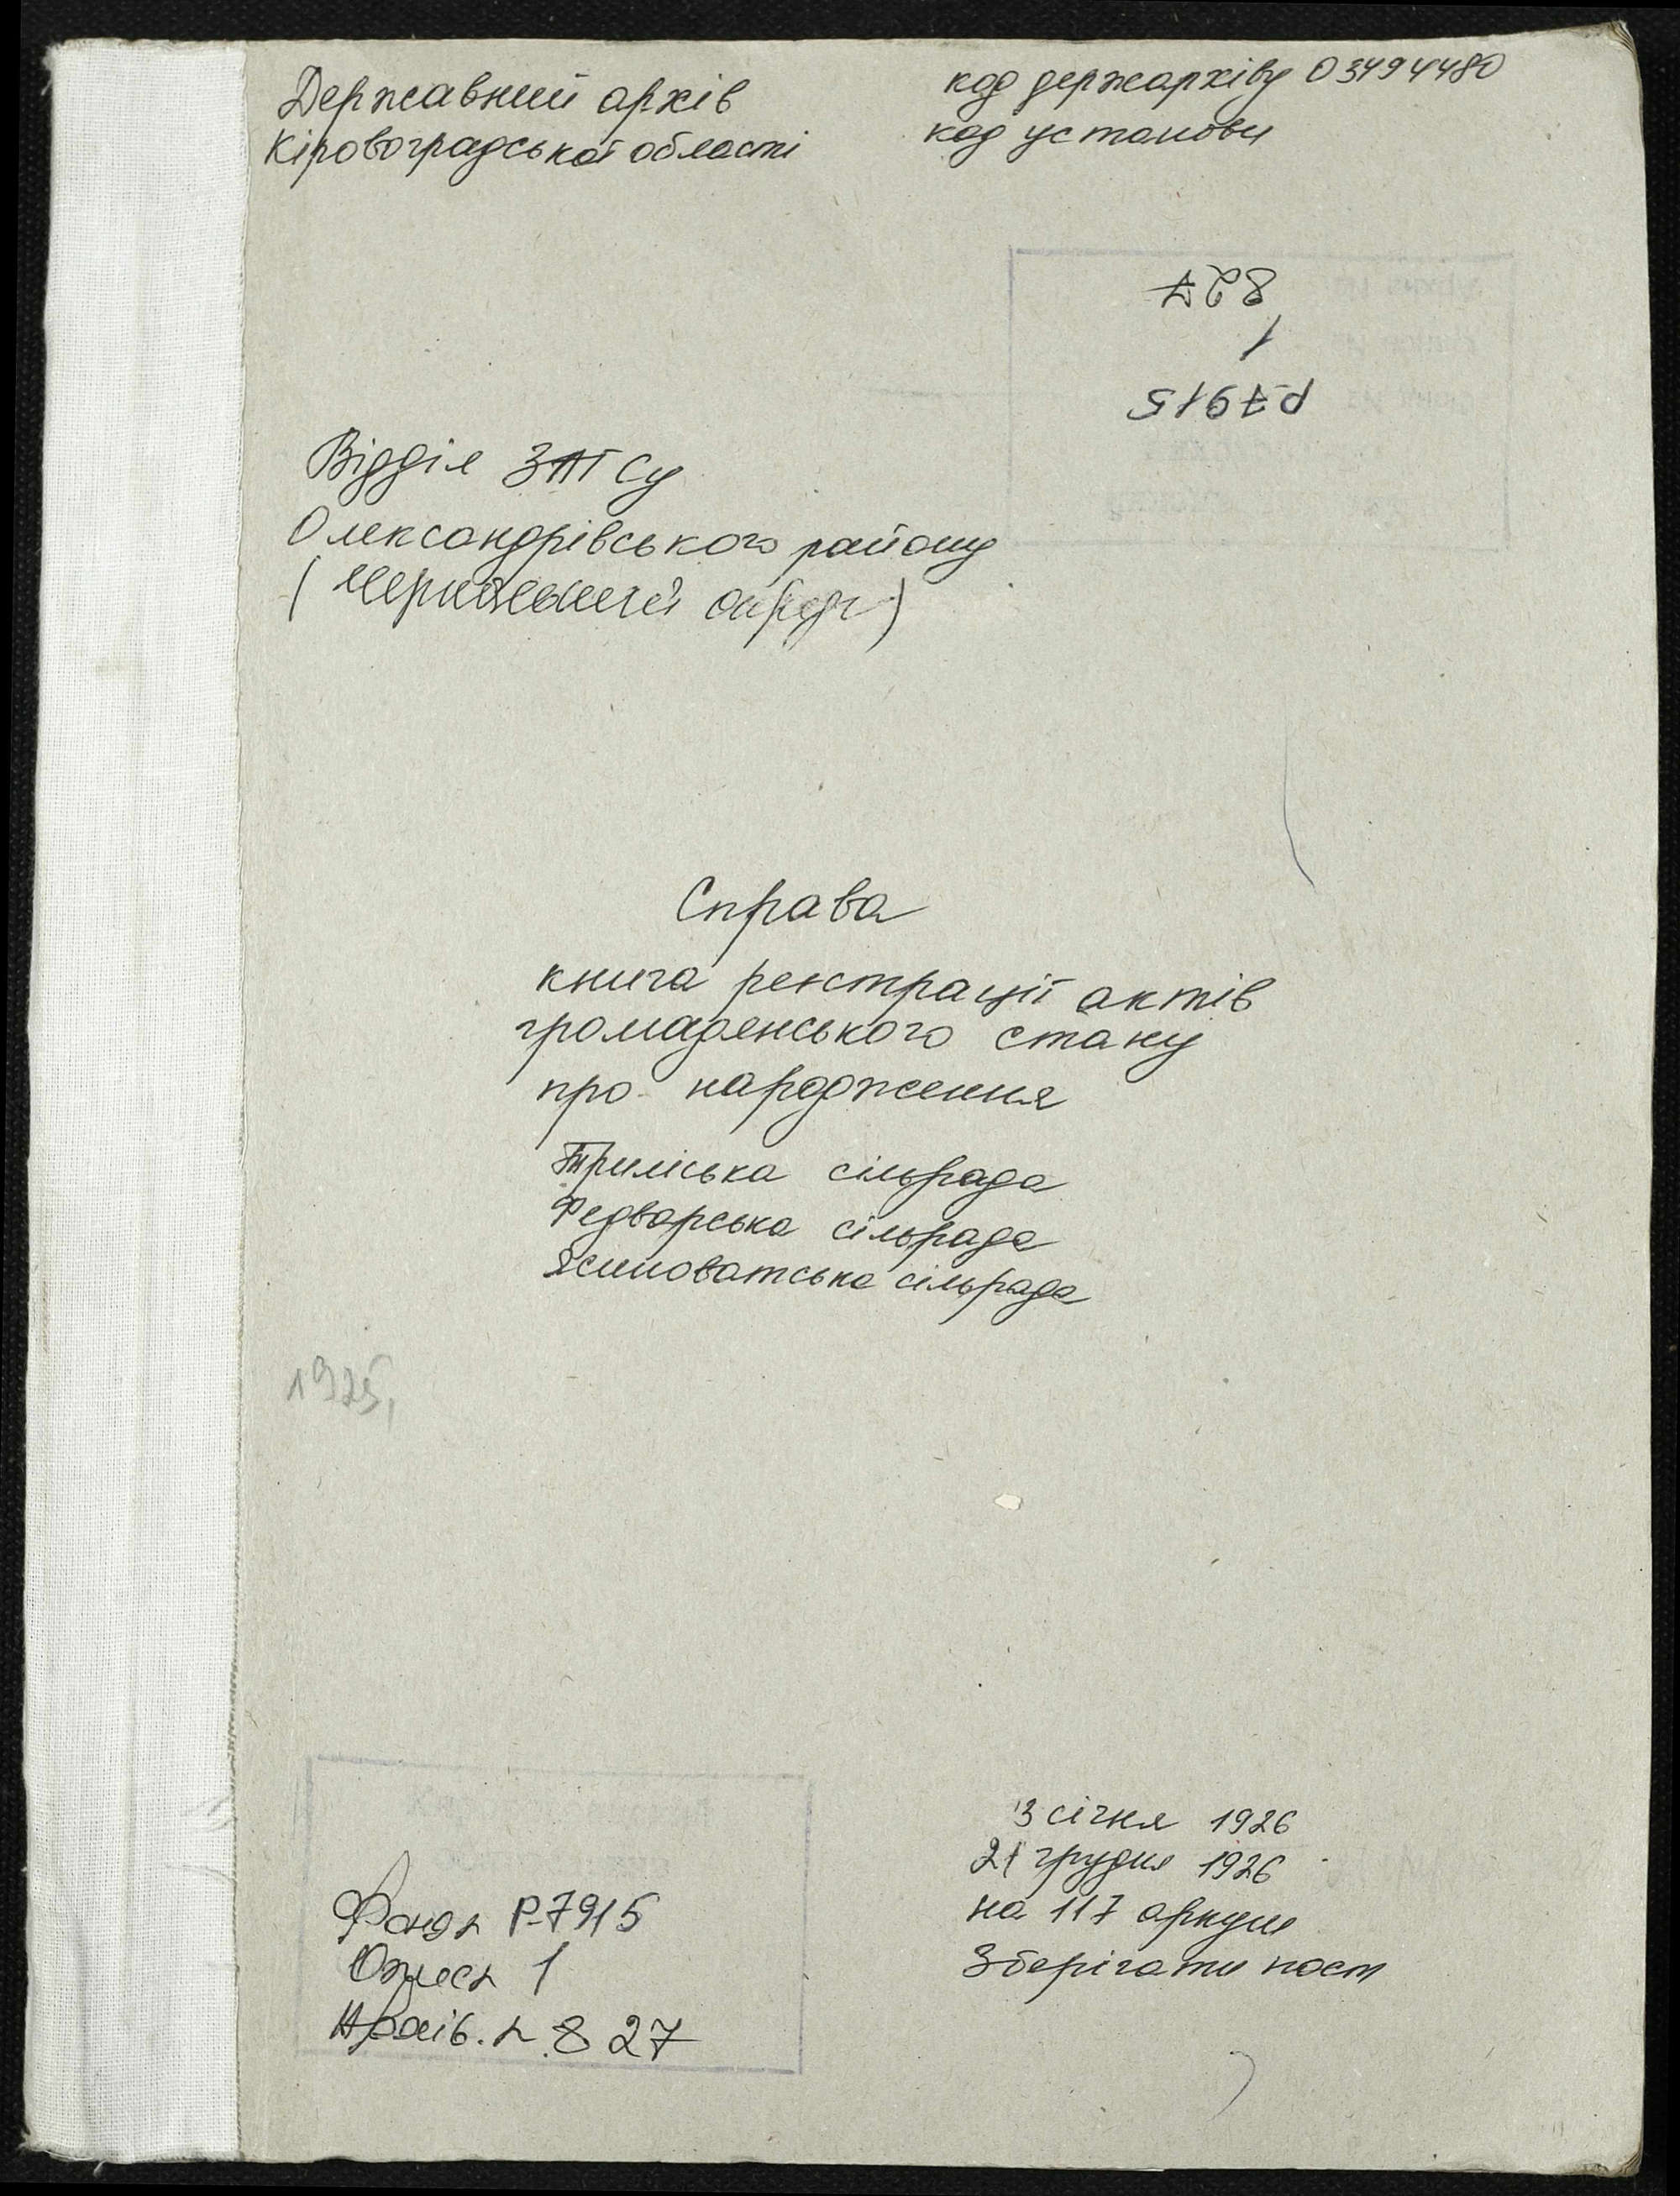 Державний архів
Кіровоградської області
код держархіву 03494480
код установи
827
1
Р-7915
Відділ ЗАГСу
Олександрівського району
( округ)
Справа
книга реєстрації актів
громадянського стану
про народження
Триліська сільрада
Федварська сільрада
Ясиноватська сільрада
1925,
3 січня 1926
21 грудня 1926
на 117 аркуш
Зберігати пост
Фонд № Р-7915
Опис № 1
Архів. № 827